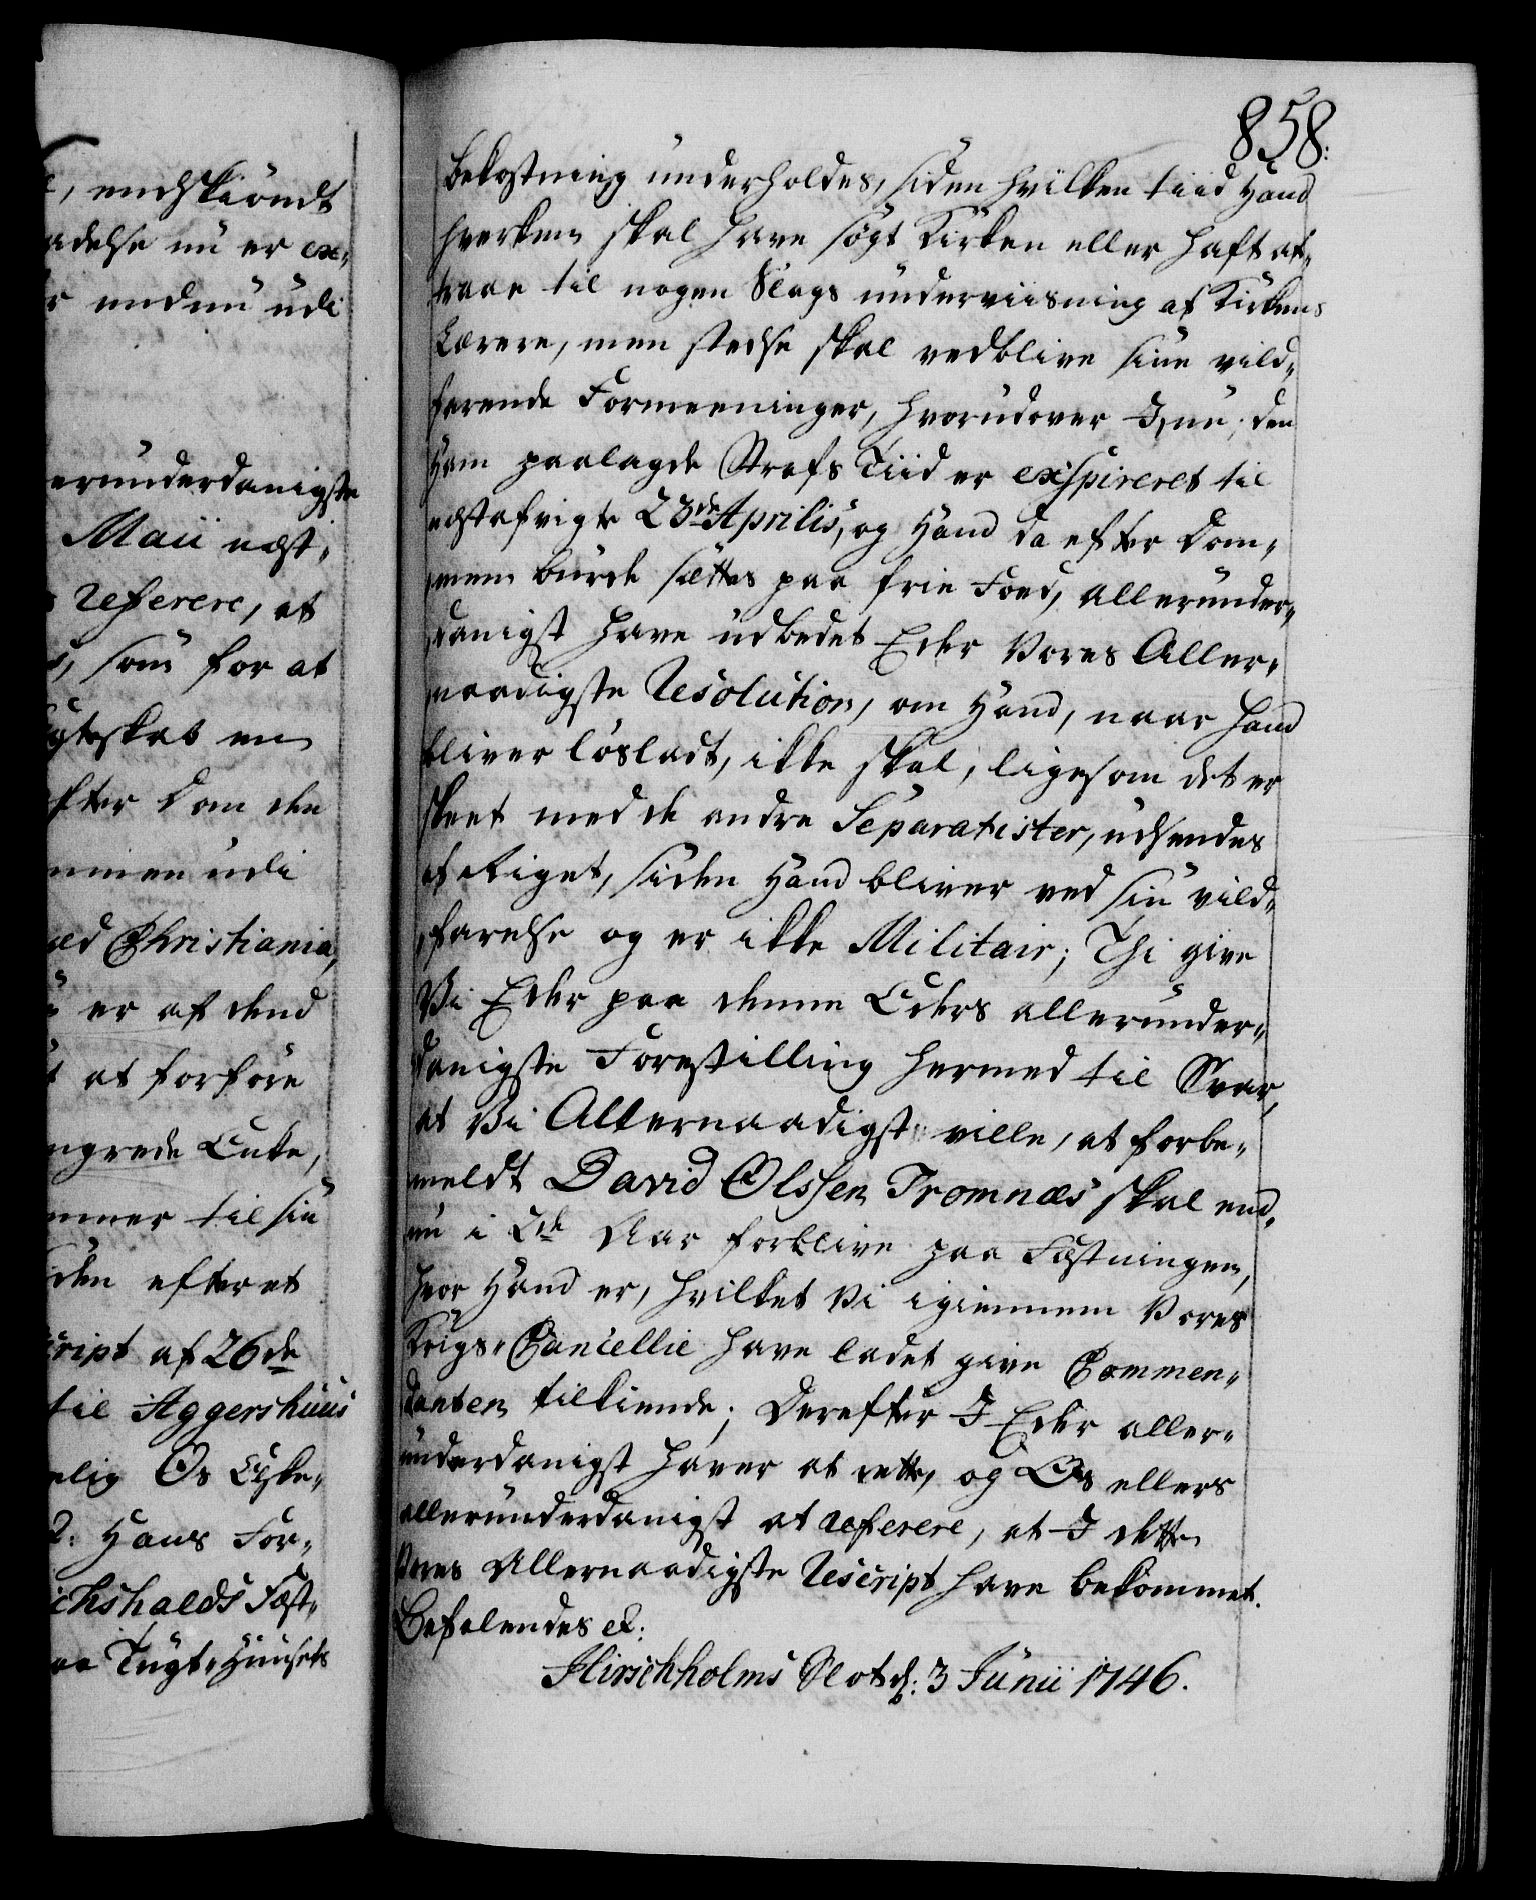 , endskiöndt
adelse nu er ex-
endnu udi
erunderdanigste
Maii næst-
referere, at
, som for at
gteskab en
efter Dom den
mmen udi
ved Christiania,
er af dend
at forföre
ngrede Enke,
mmer til sin
den efter et
cript af 26de
til Aggershuus
elig Os Elske-
2: Hans For-
ichshalds Fæst-
aa Tugt-Huusets
858:
bekostning underholdes, siden hvilken tiid Hand
hverken skal have sögt Kirken eller haft at-
traae til nogen Slags underviisning af Kirkens
Lærere, men stedse skal vedblive sine vild-
farende Formeeninger, hvorudover I, nu, den
Ham paalagde Strafs Tiid er exspireret til
nestafvigte 23de Aprilis, og Hand da efter Dom-
men burde sættes paa frie Foed, allerunder-
danigst have udbedet Eder Vores Aller-
naadigste Resolution, om Hand, naar hand
bliver lösladt, ikke skal, ligesom det er
skeet med de andre Separatister, udsendes
af Riget, siden Hand bliver ved sin vild-
farelse og er ikke Militair; Thi give
Vi Eder paa denne Eders allerunder-
danigste Forestilling hermed til Svar,
at Vi Allernaadigst ville, at forbe-
meldt David Olssen Tromnæs skal end-
nu i 2de Aar forblive paa Fæstningen,
hvor Hand er, hvilket Vi igiennem Vores
Krigs-Cancellie have ladet give Commen-
danten tilkiende; Derefter I Eder aller-
underdanigst haver at rette, og Os ellers
allerunderdanigst at referere, at I dette
Vores Allernaadigste Rescript have bekommet.
Befalendes &:
Hirschholms Slot d: 3 Junii 1746.